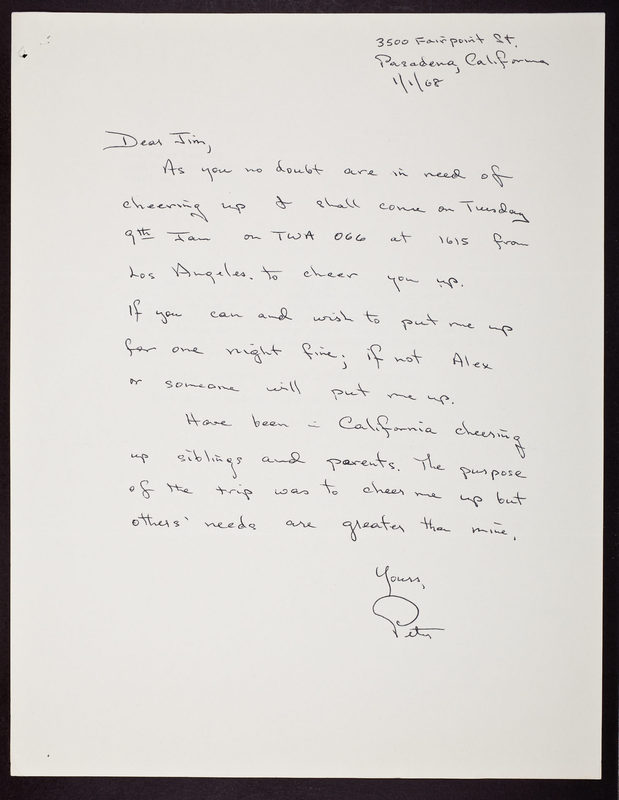 3500 Fairpoint St.
Pasadena, California
1/1/68
Dear Jim,
As you no doubt are in need of
cheering up I shall come on Tuesday
9th Jan on TWA 066 at 1615 from
Los Angeles. to cheer you up.
If you can and wish to put me up
for one night fine; if not Alex
or someone will put me up.
Have been in California cheering
up siblings and parents. The purpose
of the trip was to cheer me up but
others' needs are greater than mine.
Yours,
Peter